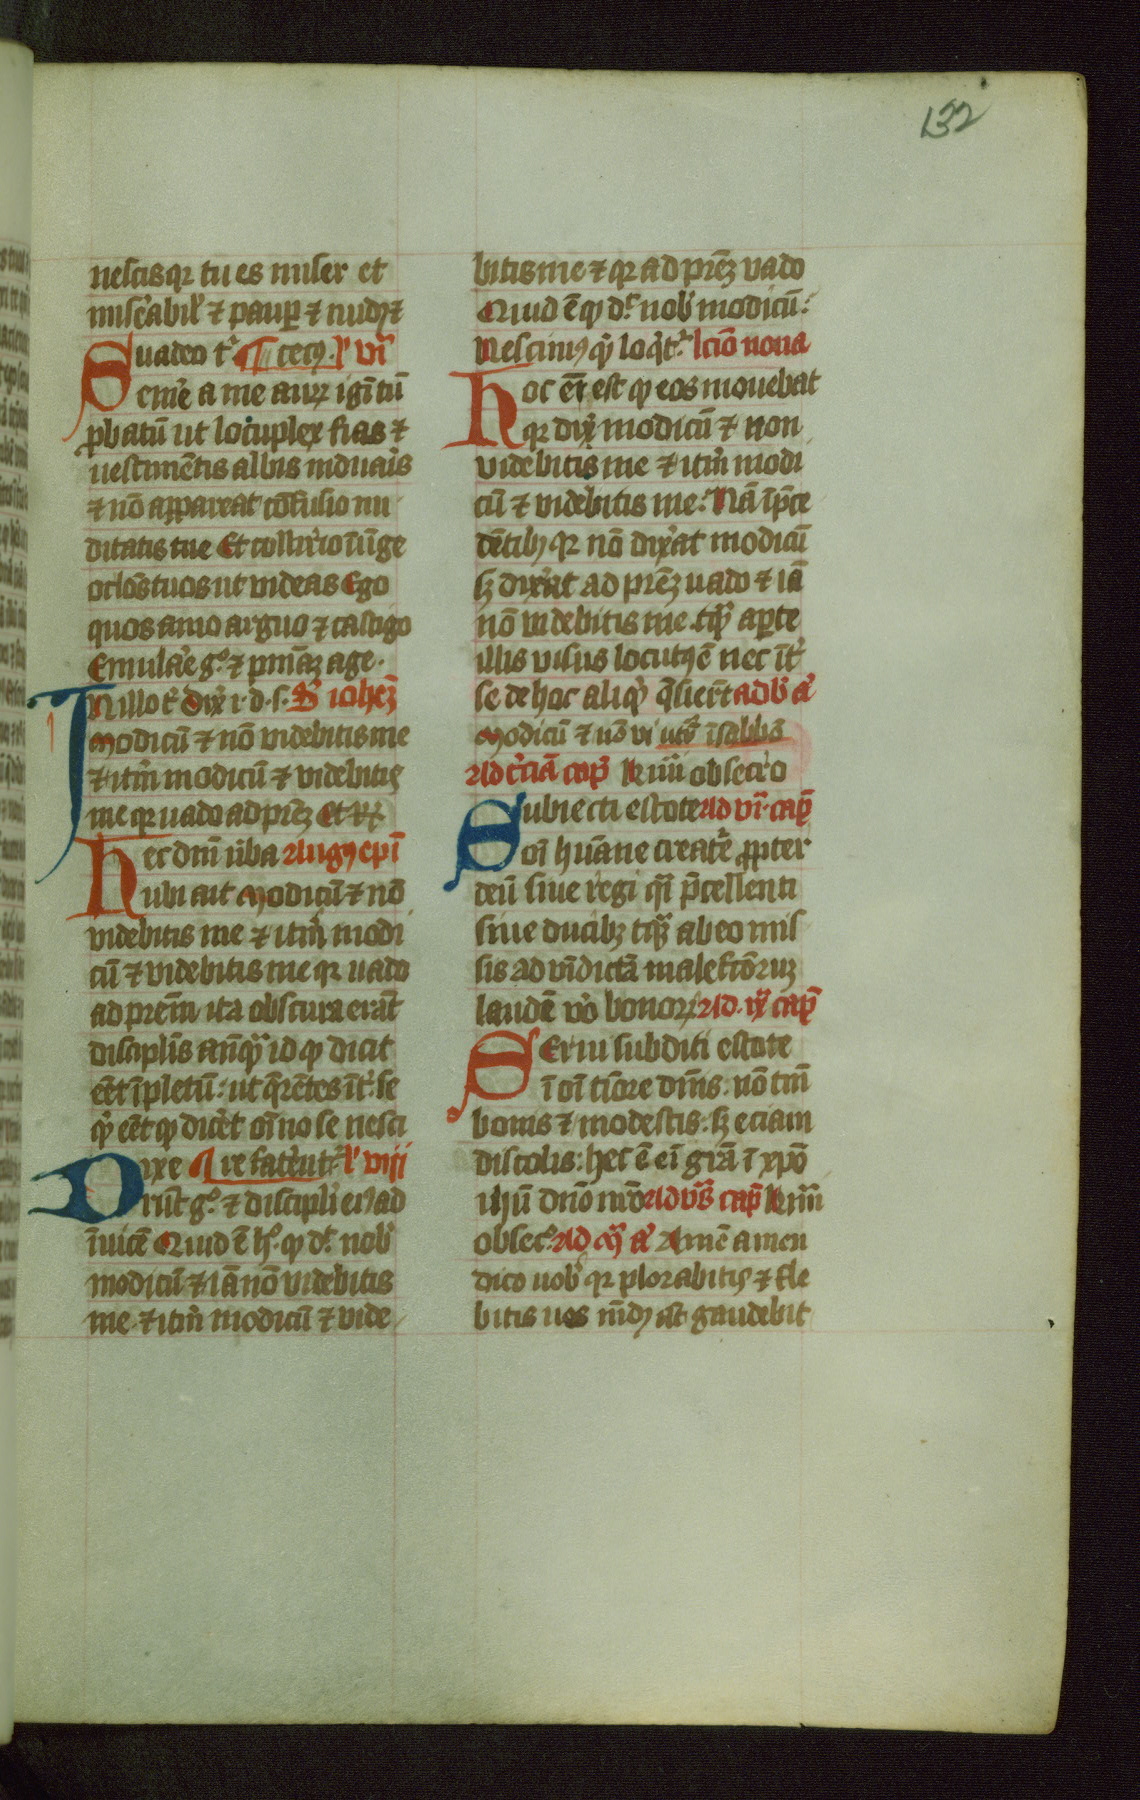 132
nescis qꝛ tu es miser et
misᷣabilᷤ ⁊ paupꝑ ⁊ nudꝰ ⁊
Suadeo tᷤ ¶ cecꝯ. lᷤ vii
emᷤe a me auꝝ ignitū
ꝓbatū ut locuplex fias ⁊
uestimētis albis induaᷤis
⁊ nō appareat cōfusio nu
ditatis tue Et collirᷤio īūge
oclōs tuos ut videas Ego
quos amo arguo ⁊ castigo
Emulaᷤe gͦ. ⁊ pniāꝫ age.
In illo tᷤ dixᷤ i. d. s. Sᷤ iohēꝫ
Modicū ⁊ nō videbitis me
⁊ itᷤm modicū ⁊ videbitis
me qꝛ uado ad prēꝫ Et Rꝝ
Hec dnī ūba Augꝯ epī
ubi ait Modicū ⁊ nō
videbitis me ⁊ itᷤm modi
cū ⁊ videbitis me qꝛ uado
ad prēm ita obscura erāt
disciplīs anꝙᷓ id qͫ dicit
eēt īpletū: ut qᷤrētes īt se
qͥ eēt qͫ dicᷤet oīno se nesci
Dixe ¶ re fatᷤent᷑. lᷤ viij
rūt gͦ. ⁊ discipli eiꝰ ad
īuicē Quid ē hͦ. qͫ dᷤ. nobᷤ
modicū ⁊ iā nō videbitis
me ⁊ itᷤm modicū ⁊ vide
bitis me ⁊ qꝛ ad prēꝫ vado
Quid ē qͫ dᷤ nobᷤ modicū:
Nescimꝰ qͥd loqͥt᷑. lcīo nona
Hoc eī est qͫ eos movebat
qꝛ dixᷤ modicū ⁊ non
videbitis me ⁊ itᷤm modi
cū ⁊ videbitis me: Nā ī pͨce
dētibꝫ qꝛ nō dixᷤat modicū
sꝫ dixᷤat ad prēꝫ uado ⁊ iā
nō videbitis me. tꝙᷓ aꝑte
illis visus locutꝰ ē nec īt
se de hoc aliqͥd qͥsiert ad bᷤ aᷤ
Modicū ⁊ nō vi utͥ ī sabbō
Ad tᷤciā capᷤ kᷤmī obsecro
Subiecti estote ad vi. capᷤ
oī hūane creatᷤe ꝓpter
deū siue regi qͣsi pᷤcellenti
siue ducibꝫ tꝙᷓ ab eo mis
sis ad vīdictā malefcōruꝫ
laudē vᷤo bonoꝝ Ad. ix capᷤ
Serui subditi estote
ī oī tīore dnīs: nō tm̄
bonis ⁊ modestis. sꝫ eciam
discolis: hec ē eī grā ī xpō
ihū dnō nrō ad vᷤs capᷤ kᷤmī
obsecᷤ. Ad mᷓ aᷤ Amē amen
dico uobᷤ qꝛ plorabitis ⁊ fle
bitis uos mūdꝰ aūt gaudebit